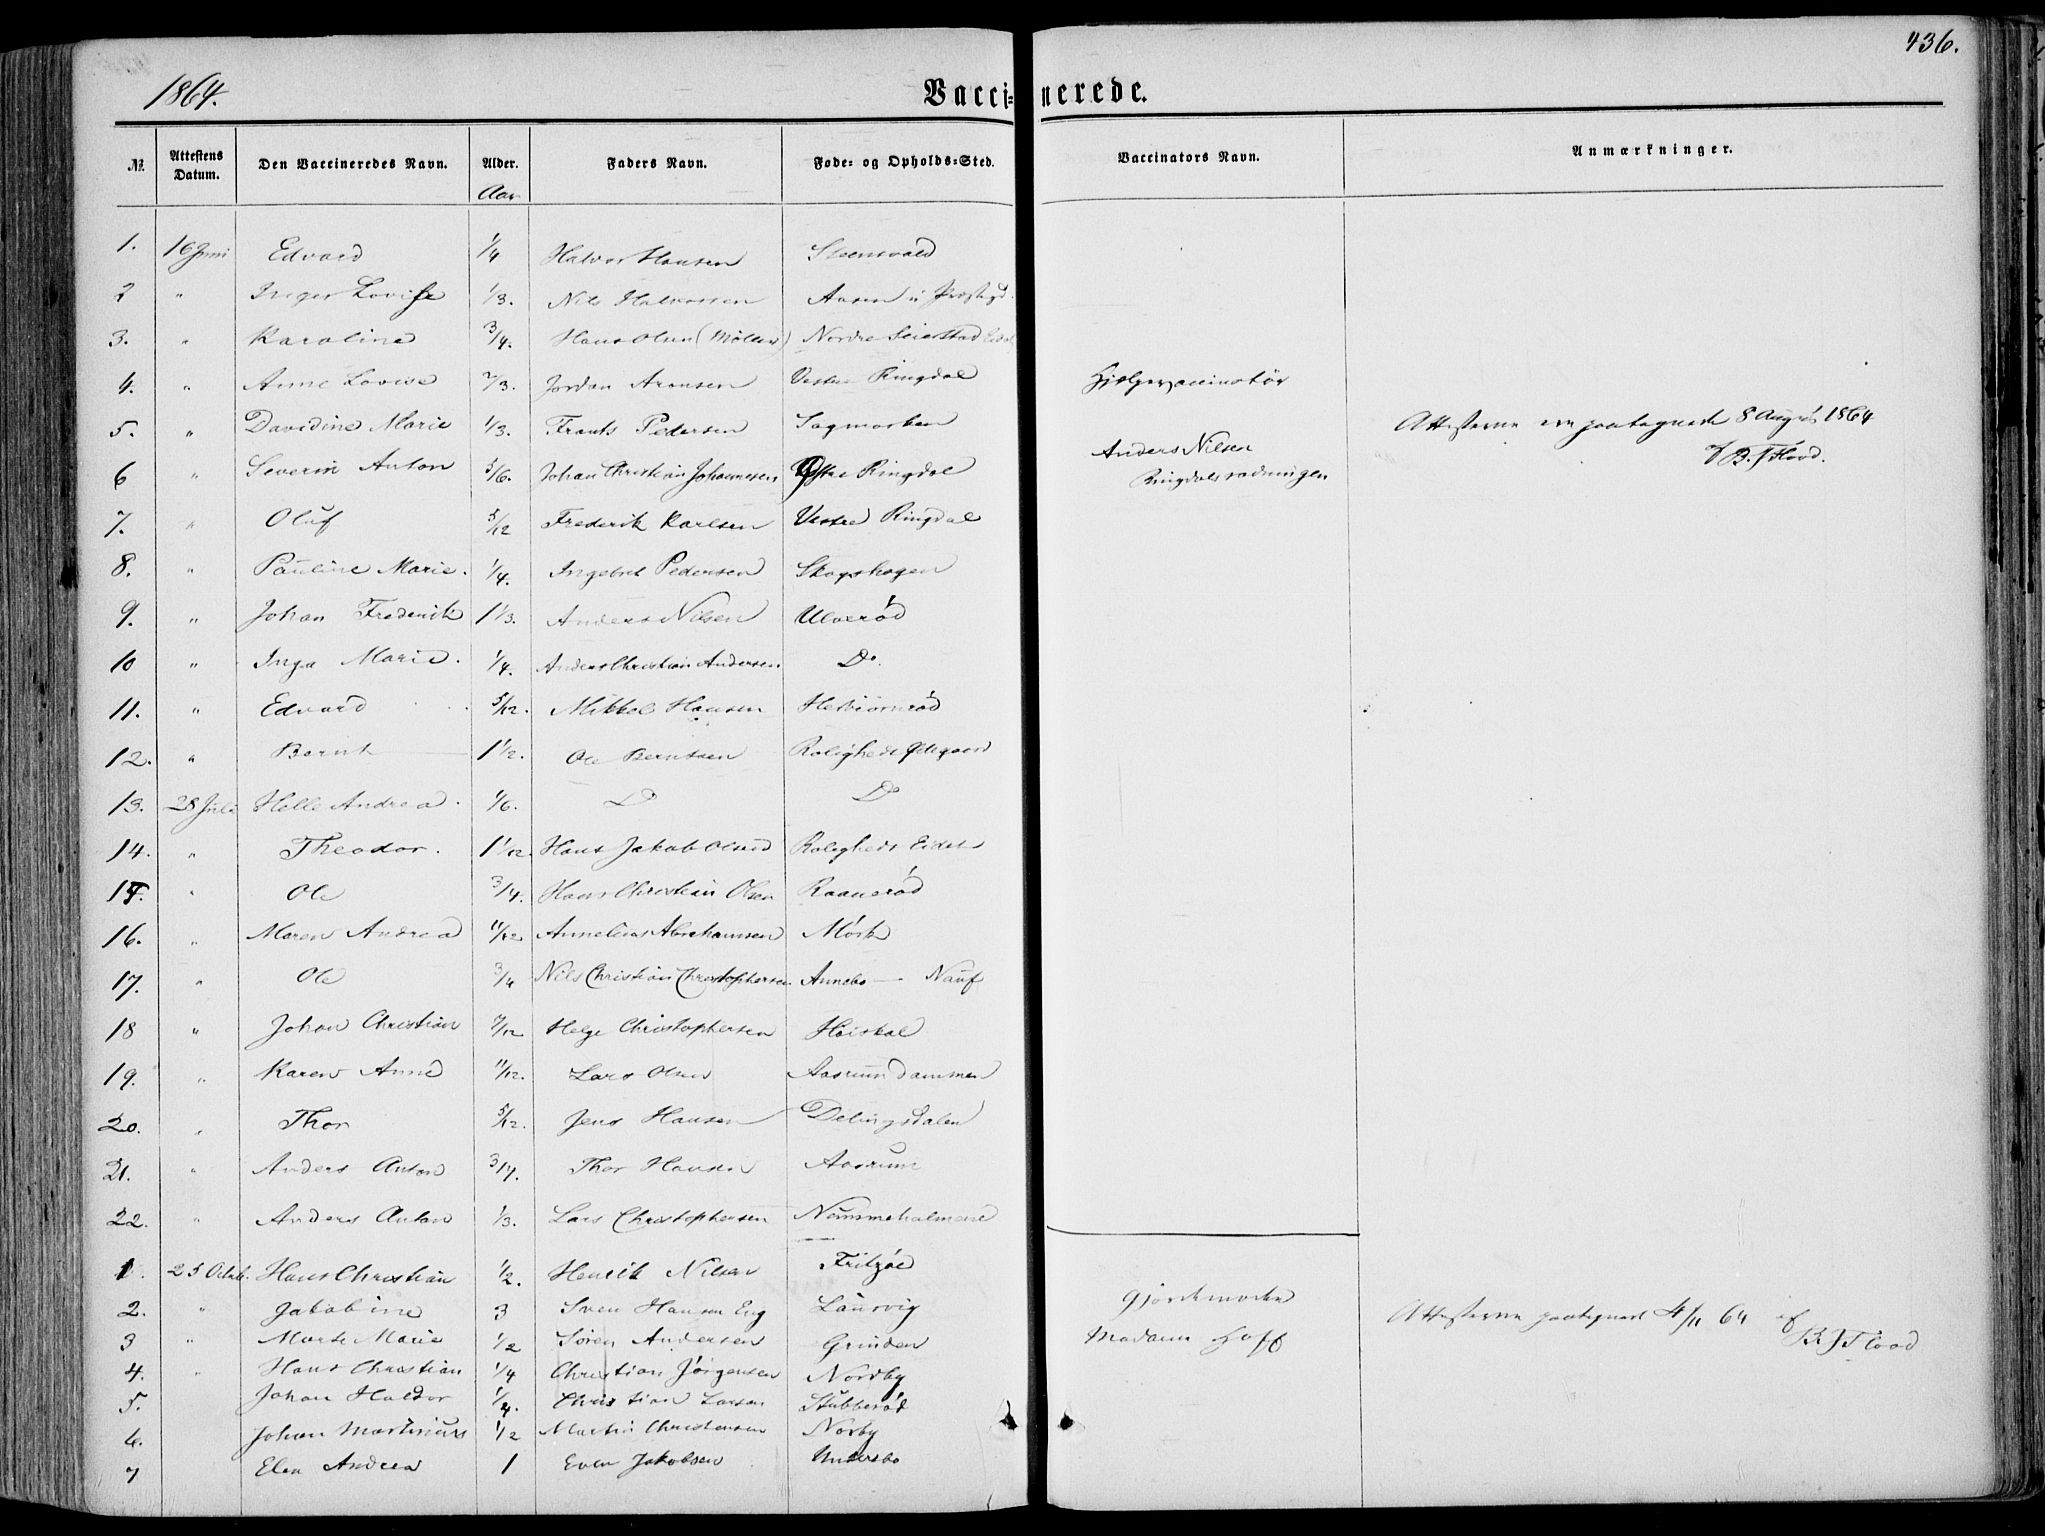 436.
1864. Vaccinerede.
№. Attestens Datum. Den Vaccineredes Navn. Alder. Faders Navn. Føde- og Opholds-Sted. Vaccinators Navn. Anmærkninger.
Aar
1. 16 Juni Edvard 1/4 Halvor Hansen Steensvald
2 " Inger Lovise 1/3. Nils Halvorsen Aasen
3. " Karoline 3/4. Hans Olsen (Møller) Nordre Seierstad
4. " Anne Lovise 2/3. Jordan Aronsen Vestre Ringdal Hjelpevaccinatör
5. " Davidine Marie 1/3. Frants Pedersen Sagmorken Attesterne ere paategnede 8 August 1864
6 " Severin Anton 5/6. Johan Christian Johannesen Østre Ringdal Anders Nilsen af B. J Flood.
Ringdals
7. " Oluf 5/12 Frederik Karlsen Vestre Ringdal
8. " Pauline Marie. 1/4. Ingebret Pedersen Skogshagen
9. " Johan Frederik 1 1/3. Anders Nilsen Ulverød
10 " Inga Marie. 1/4. Anders Christian Andersen Do.
11. " Edvard 5/12. Mikkel Hansen Hesbiørnrød
12. " Bernt 1 1/2. Ole Berntsen Roligheds Ødegaard
13. 28 Juli Helle Andrea. 1/6. Do Do
14. " Theodor. 1 1/12. Hans Jakob Olsen Roligheds Eidet
15. " Ole 3/4. Hans Christian Olsen Raanerød
16. " Maren Andrea 11/12 Annelius Abrahamsen Mörk
17. " Ole 3/4 Nils Christian Christophersen Annebo — Nauf
18 " Johan Christian 9/12 Helge Christophersen Høiskal
19. " Karen Anne 11/12. Lars Olsen Aasrumdammen
20. " Thor 5/12. Jens Hansen Delingsdalen
21. " Anders Anton 3/4. Thor Hansen Aasrum
22. " Anders Anton 1/3. Lars Christophersen Nummeholmene
1. 25 Octob. Hans Christian 1/2. Henrik Nilsen Fritzöe
2. " Jakobine 3 Sven Hansen Eng Laurvig Gjordemoder
3 " Marte Marie 1/2 Sören Andersen Grinden Madame Hoff Attesterne paategnede 4/11 64 af B J Flood
4. " Hans Christian 1/4 Christian Jörgensen Nordby
5. Johan Haldor 1/4. Christian Larsen Stubberød
6. Johan Martinius 1/2 Martin Christensen Norby
7 Elen Andrea 1 Even Jakobsen Undersbo